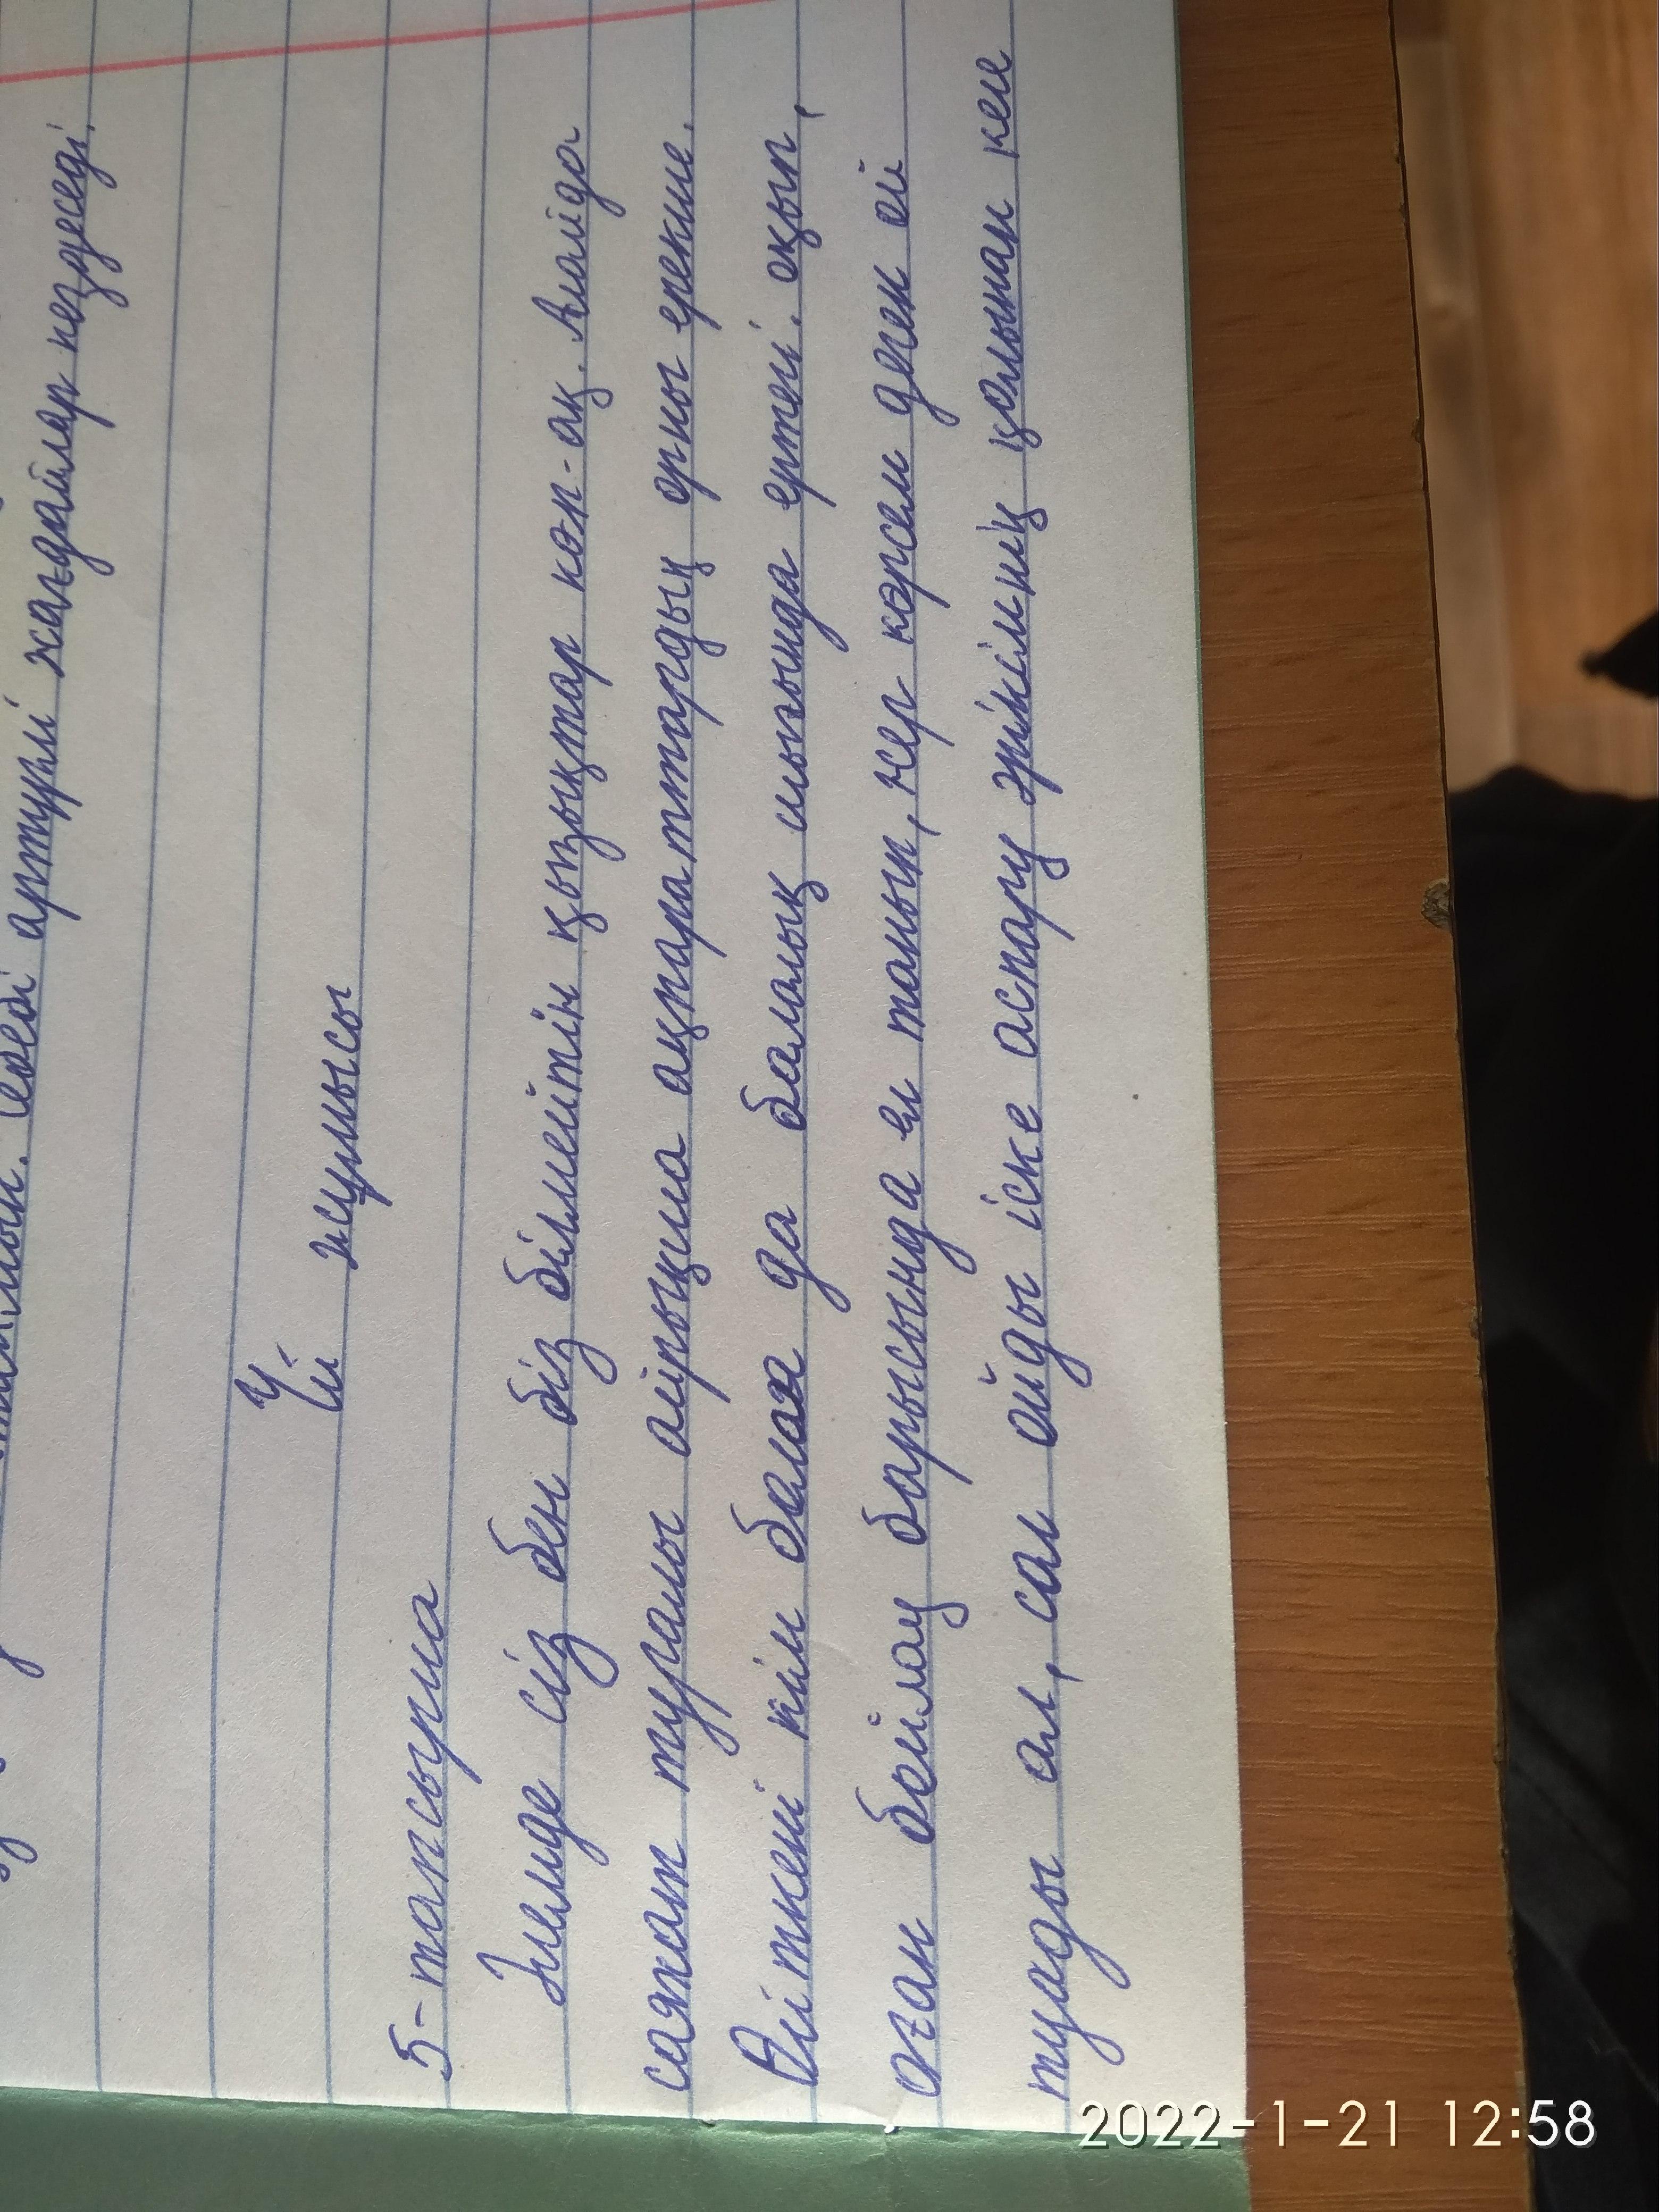 әртүрлі жағдайлар кездеседі.
Үй жұмысы
5-тапсырма
Әлемде сіз бен біз білмейтін қызықтар көп-ақ. Алайда
саяхат туралы айрықша ақпараттардың орны ерекше.
Өйткені кім болса да балалық шағында ертегі оқып,
оған бойлау барысында ел танып, жер көрсем деген ой
туады ал, сол ойды іске аспару әркімнің қолынан келе
2022-1-21 12:58